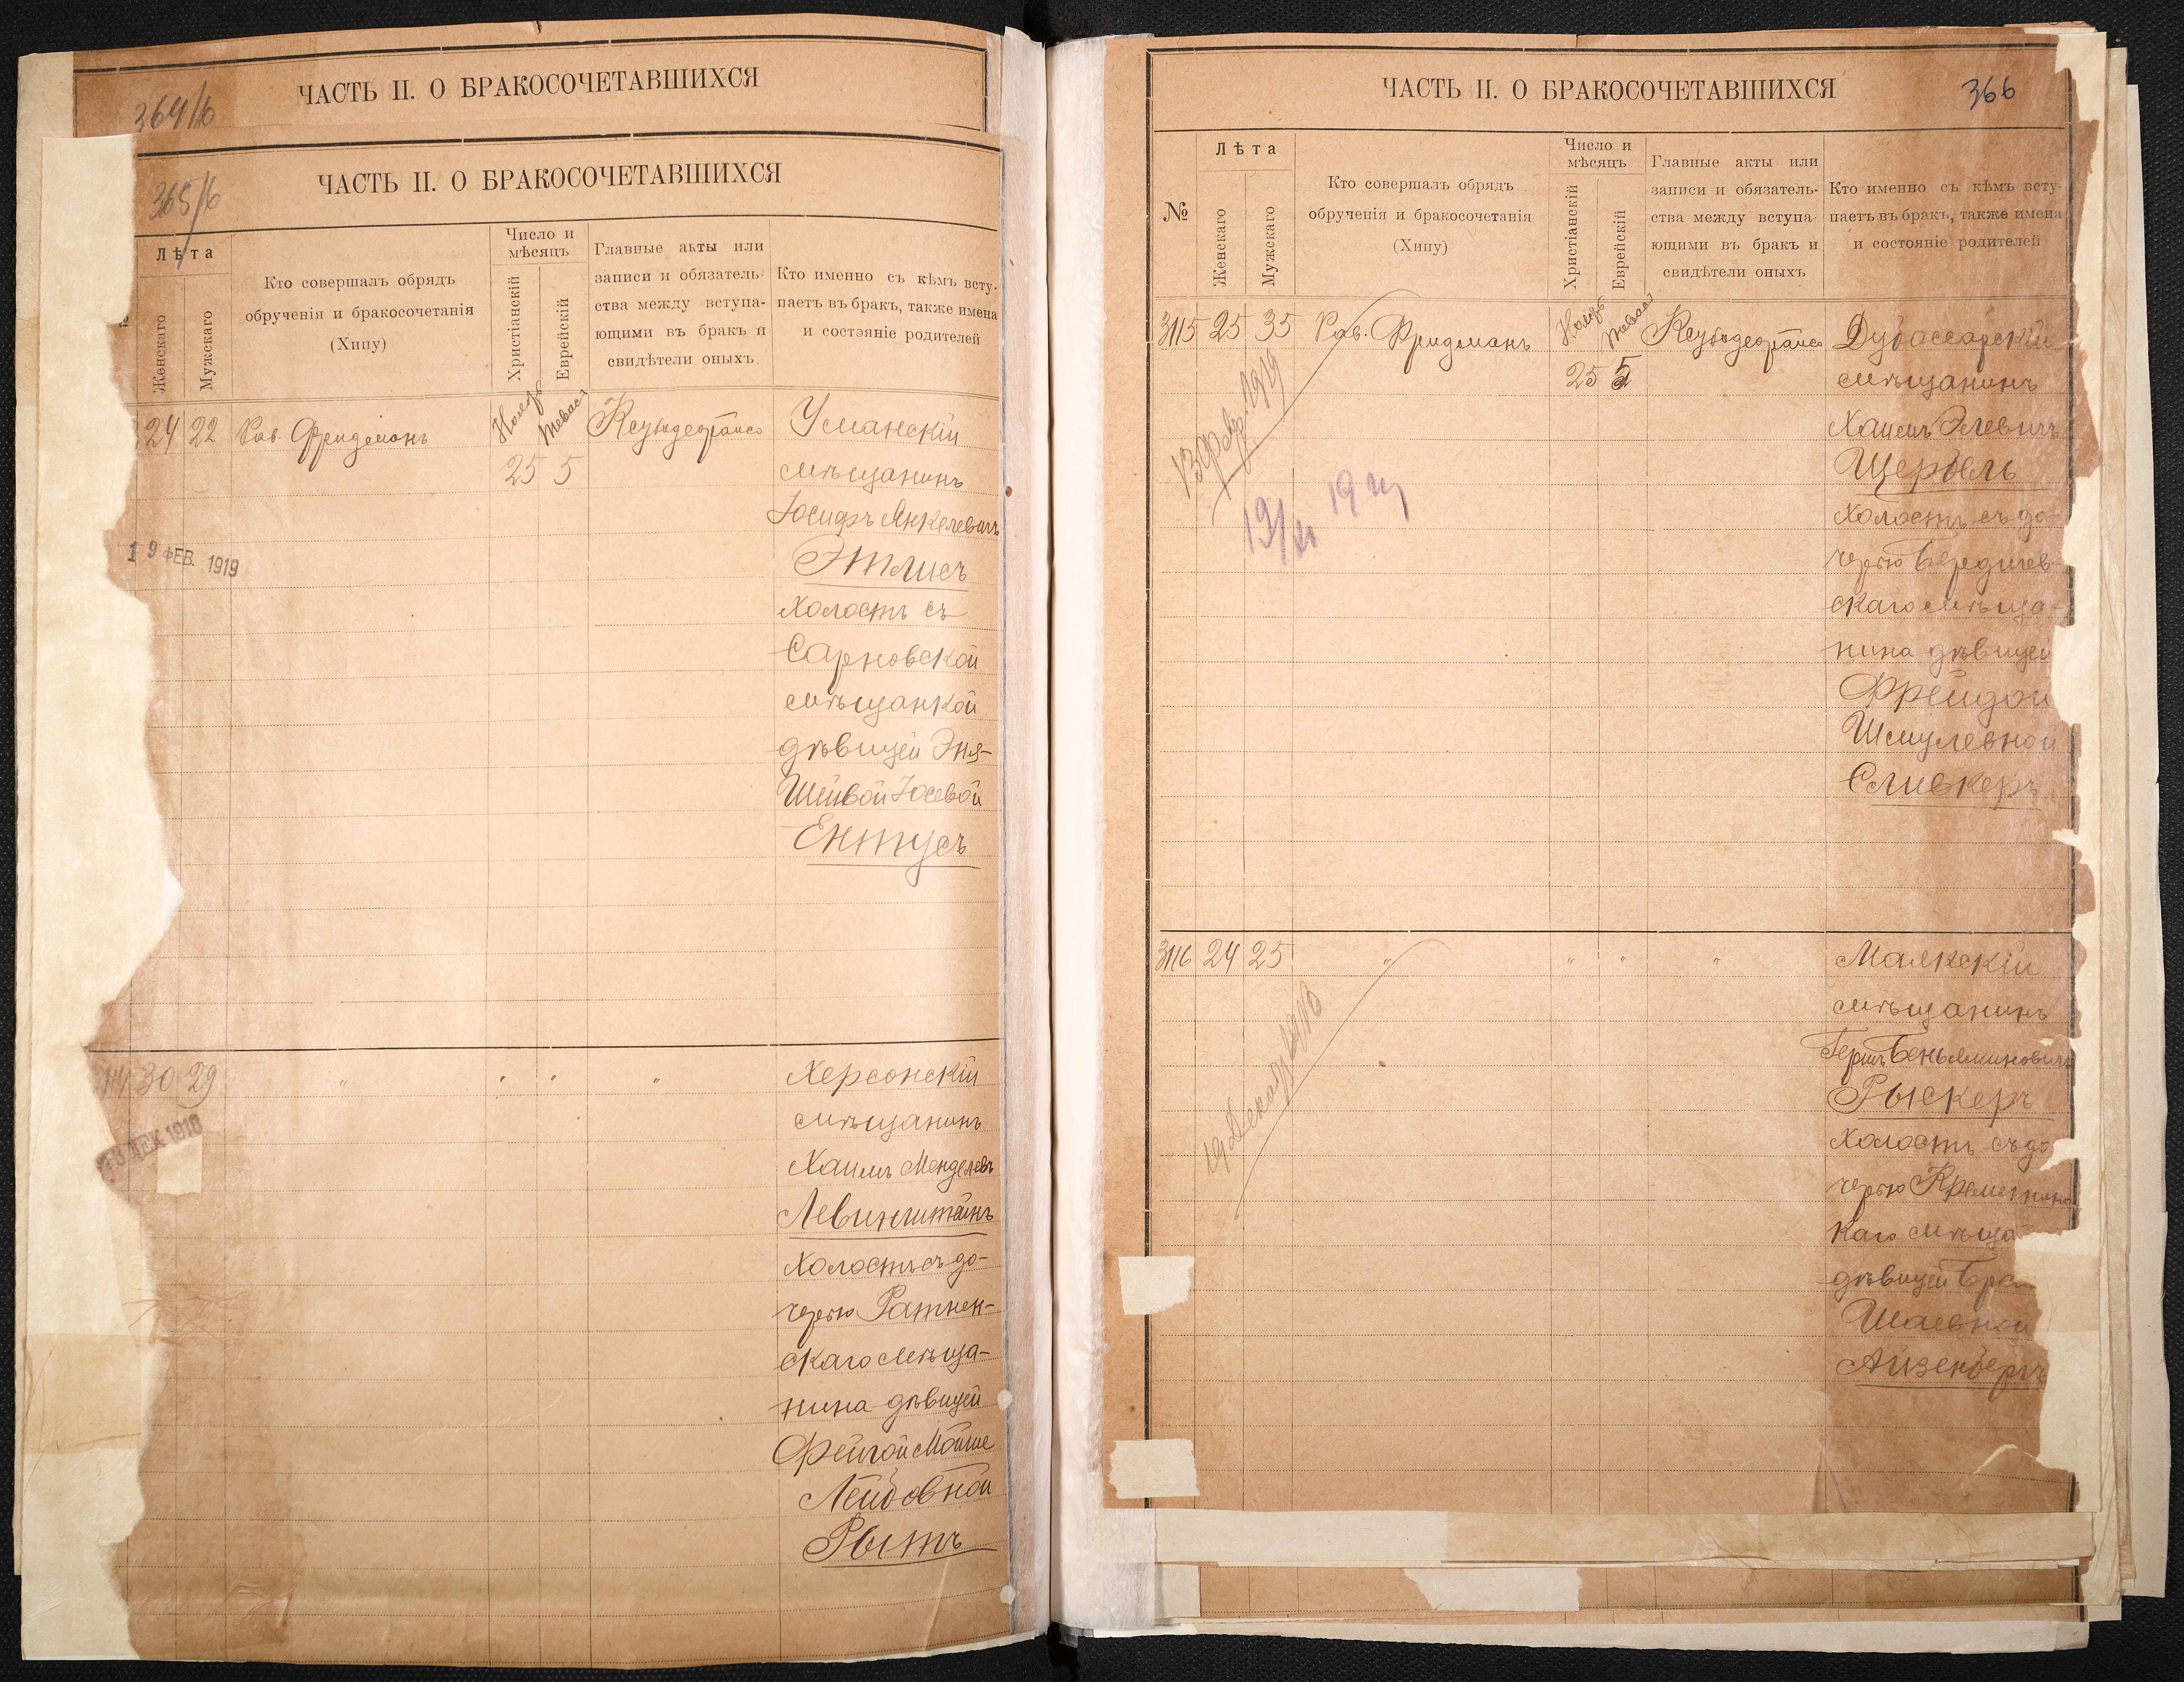 ЧАСТЬ II. О БРАКОСОЧЕТАВШИХСЯ
364/б
ЧАСТЬ II. О БРАКОСОЧЕТАВШИХСЯ
365/б
Лѣта
Женскаго
Мужскаго
Кто совершалъ обрядъ
обрученія и бракосочетанія
(Хипу)
Число и
мѣсяцъ
Христіанскій
Еврейскій
Главные акты или
записи и обязатель-
ства между вступа-
ющими въ бракъ и
свидѣтели оныхъ.
Кто именно съ кѣмъ всту-
паетъ въ бракъ, также имена
и состэяніе родителей
24 22 Рав. Фридманъ Ноябр Тевася 25 5
Уманскій
мѣщанинъ
Іосифъ Янкелевичъ
Этлисъ
холостъ съ
Сарновской
мѣщанкой
дѣвицей Эня-
Шейвой Іосевой
Ентусъ
19 ФЕВ. 1919
30 29 " " " "
Херсонскій
мѣщанинъ
Хаимъ Менделевъ
Левинштейнъ
холостъ съ до-
черью Ратнен-
скаго мѣща-
нина дѣвицей
Фейгой Мойше
Лейбовной
Рытъ
ДЕК. 1918
ЧАСТЬ II. О БРАКОСОЧЕТАВШИХСЯ
366
№
Лѣта
Женскаго
Мужскаго
Кто совершалъ обрядъ
обрученія и бракосочетанія
(Хипу)
Число и
мѣсяцъ
Христіанскій
Еврейскій
Главные акты или
записи и обязатель-
ства между вступа-
ющими въ бракъ и
свидѣтели оныхъ
Кто именно съ кѣмъ всту-
паетъ въ бракъ, также имена
и состояніе родителей
3115 25 35 Рав. Фридманъ Ноябр Тевася 25 5
Дубоссарскій
мѣщанинъ
Хаимъ Элевичъ
Щербель
холостъ съ до-
черью Бердичев-
скаго мѣща-
нина дѣвицей
Фрейдой
Шмулевной
Сливкеръ
13 Февр. 1919
3116 24 25 " " " "
Маякскій
мѣщанинъ
Гершъ Беньяминовичъ
Рыскеръ
холостъ съ до-
черью
каго мѣща-
дѣвицей
Шаевной
Айзенбергъ
19 Декабр 1918